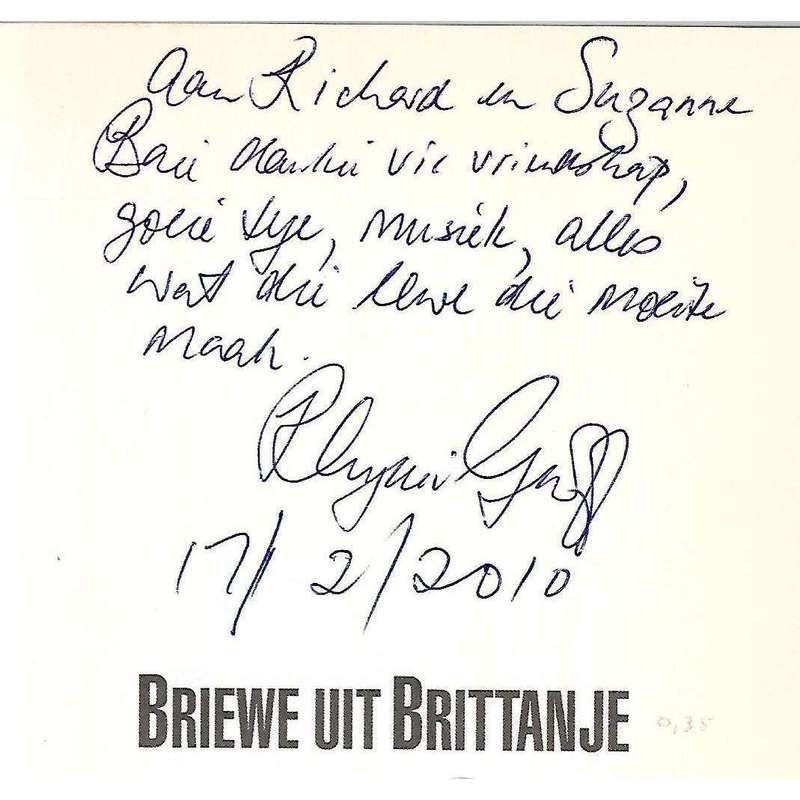 Aan Richard en Suzanne
Baie dankie vir vriendskap,
goeie tye, musiek, alles
wat die lewe die moeite
maak.
17/2/2010
BRIEWE UIT BRITTANJE
0,35